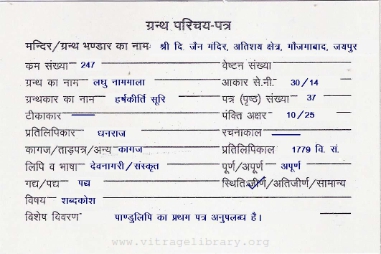 ग्रन्थ परिचय-पत्र
मन्दिर/ग्रन्थ भण्डार का नामः श्री दि. जैन मंदिर, अतिशय क्षेत्र, मौजमाबाद, जयपुर
क्रम संख्या 247 वेष्टन संख्या
ग्रन्थ का नाम लघु नामगाला आकार से.मी. 30/14
ग्रन्थकार का नाम हर्षकीर्ति सूरि पत्र (पृष्ठ) संख्या 37
टीकाकार पंक्ति अक्षर 10/25
प्रतिलिपिकार धनराज रचनाकाल
कागज/ताड़पत्र/अन्य कागज प्रतिलिपिकाल 1779 वि. सं.
लिपि व भाषा देवनागरी/संस्कृत पूर्ण/अपूर्ण अपूर्ण
गद्य/पद्य पद्य स्थिति जीर्ण/अतिजीर्ण/सामान्य
विषय शब्दकोश
विशेष विवरण पाण्डुलिपि का प्रथम पत्र अनुपलब्ध है।
www.vitragelibrary.org